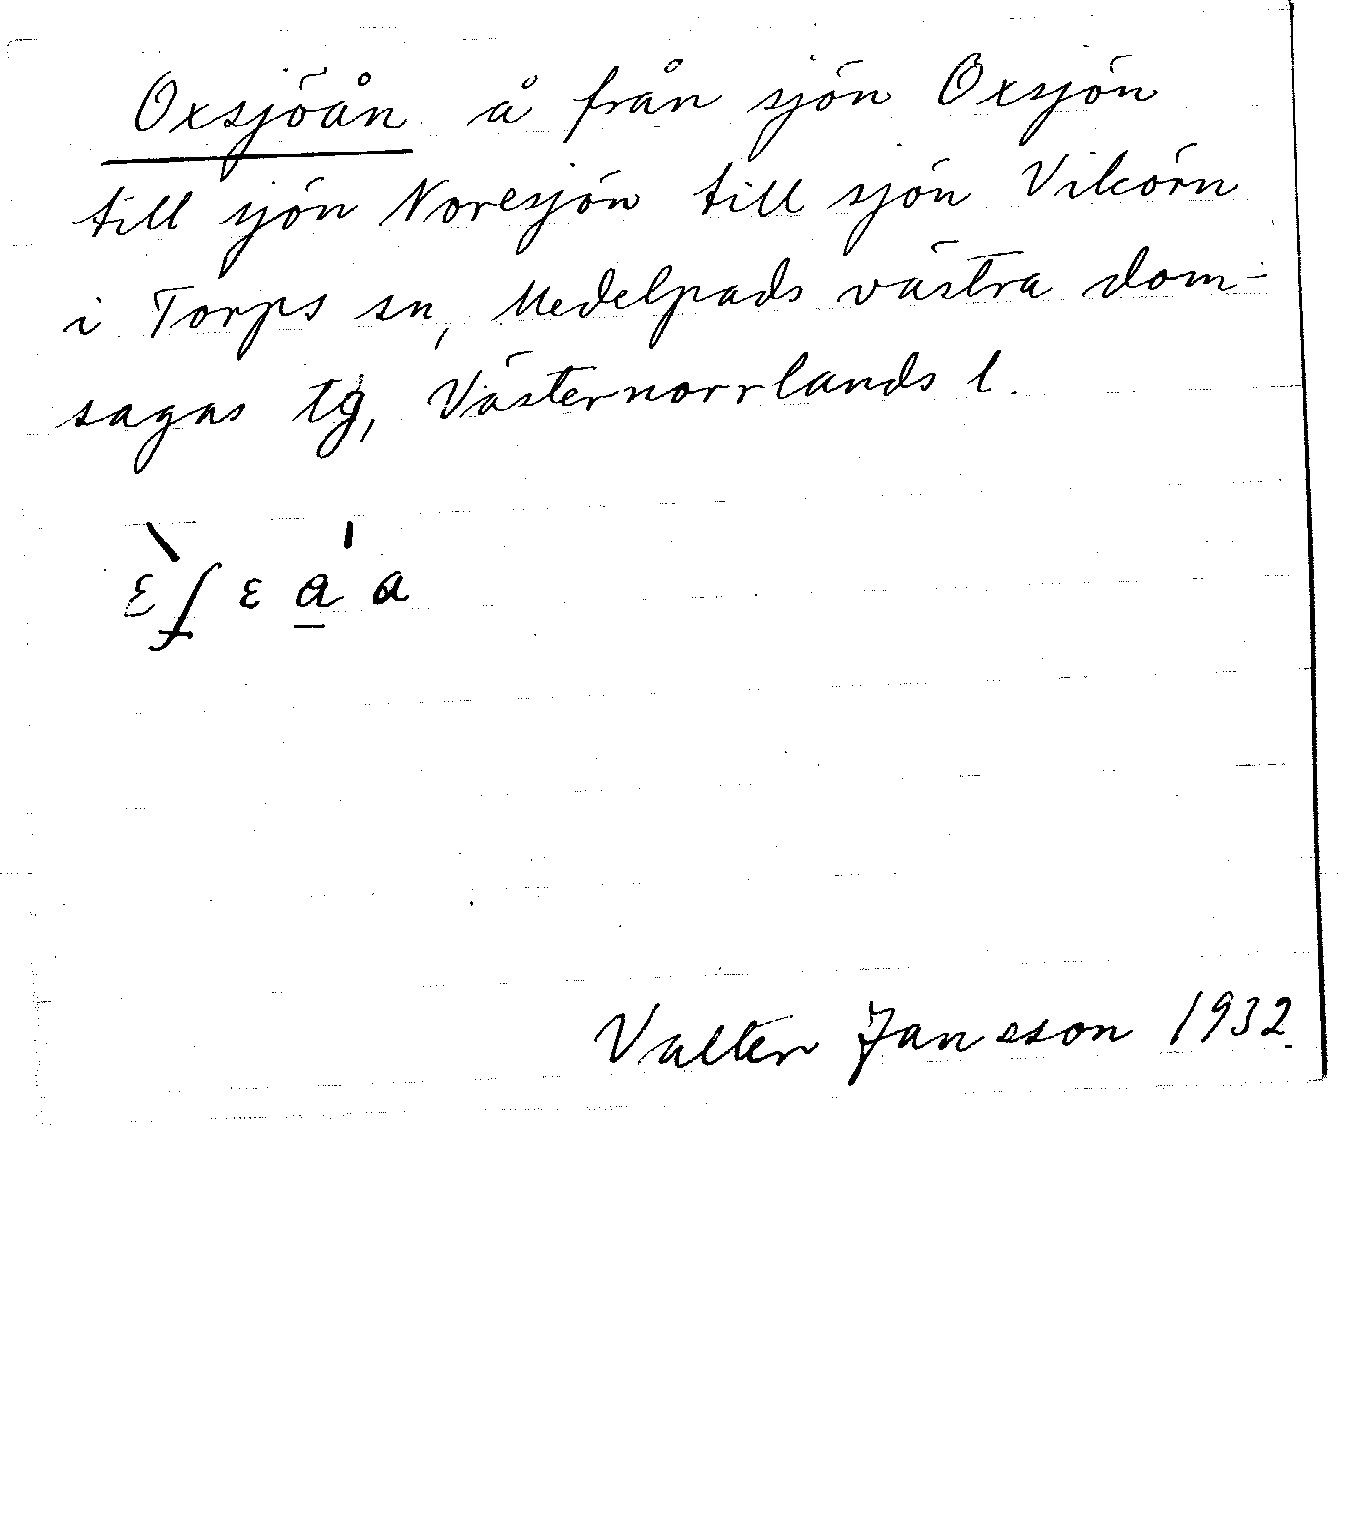 Oxsjöån å från sjön Oxsjön
till sjön Noresjön till sjön Vikörn
i Torps sn, Medelpads västra dom-
sagas tg, Västernorrlands l.
Valter Jansson 1932.